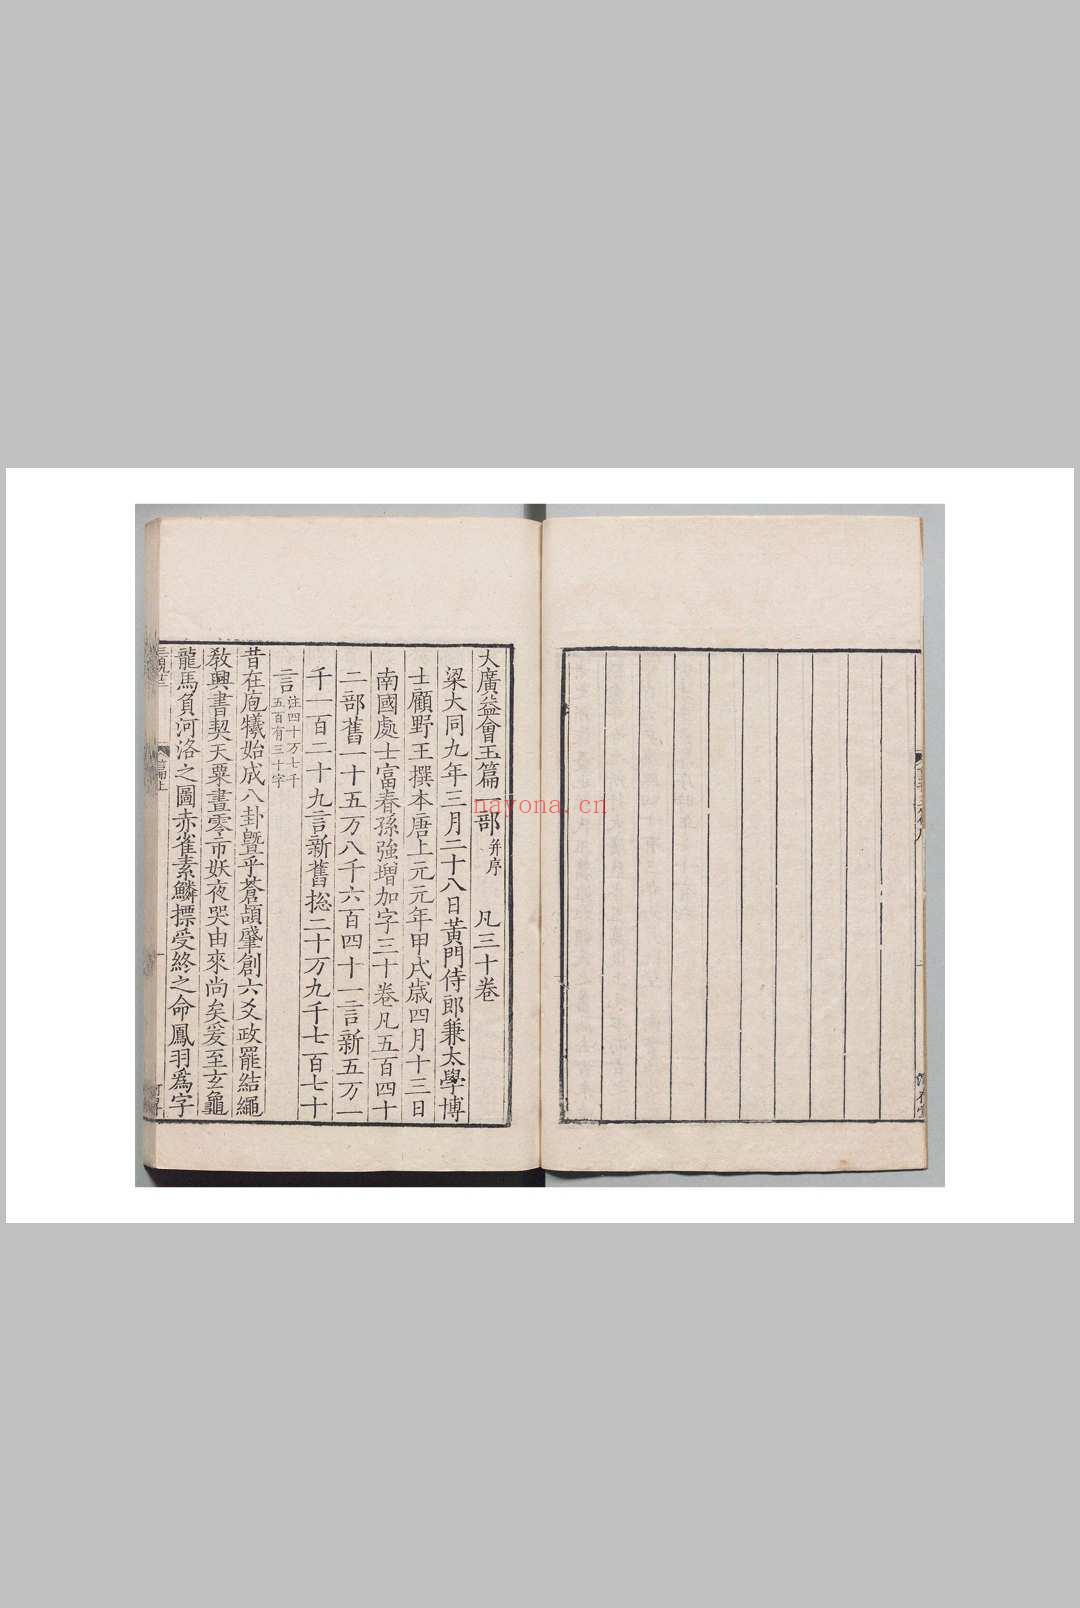 大廣益會玉篇一部并序　凡三十卷
梁大同九年三月二十八日黃門侍郎兼太學博
士顧野王撰本唐上元元年甲戌歲四月十三日
南國處士富春孫強增加字三十卷凡五百四十
二部舊一十五万八千六百四十一言新五万一
千一百二十九言新舊揔二十万九千七百七十
言註四十万七千
五百有三十字
昔在庖犧始成八卦暨乎蒼頡肇創六爻政罷結繩
教興書契天粟晝零市妖夜哭由來尚矣爰至玄龜
龍馬負河洛之圖赤雀素鱗摽受終之命鳳羽爲字
篇上
nayona.cn